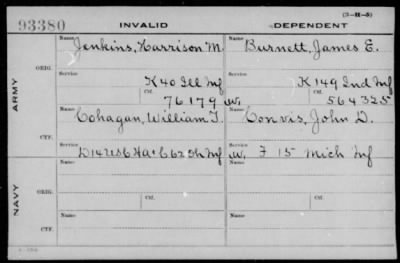 (3-H-5)
93380 INVALID DEPENDENT
ARMY
ORIG.
Name Jenkins, Harrison M. Name Burnett, James E.
Service K 40 Ill Inf Service K 149 Ind Inf
Ctf. 76179 W. Ctf. 564325
CTF.
Name Cohagan, William T. Name Convis, John D.
Service W. F 15 Mich Inf
NAVY
ORIG.
Name Name
Service Ctf. Service Ctf.
CTF.
Name Name